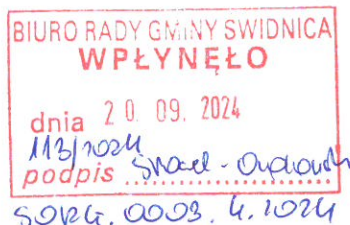 BIURO RADY GMINY SWIDNICA
WPŁYNĘŁO
dnia 20. 09. 2024
113/2024
podpis
SORG. 0003. 4. 2024